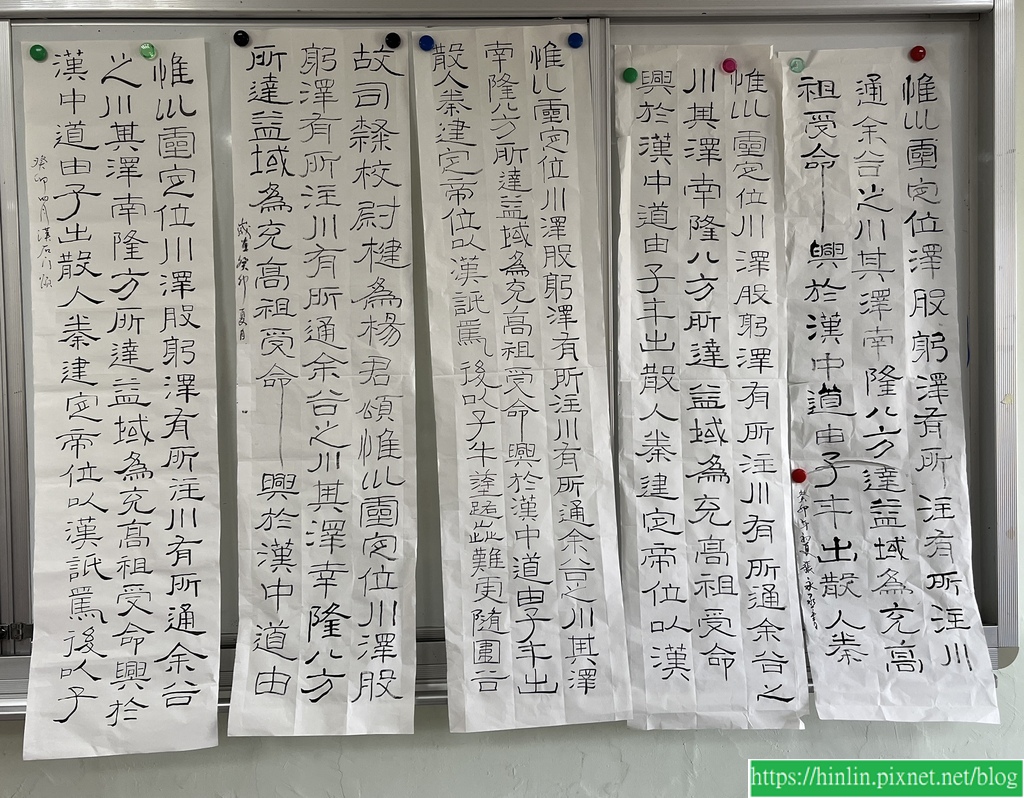 惟以靈定位澤股躬澤有所注有所注川
通余谷之川其澤南隆八方達益域為充高
祖受命興於漢中道由子午出散人秦
惟以靈定位川澤股躬澤有所注川有所通余谷之
川其澤南隆八方所達益域為充高祖受命
興於漢中道由子午出散人秦建定帝位以漢
惟以靈定位川澤股躬澤有所注川有所通余谷之川其澤
南隆八方所達益域為充高祖受命興於漢中道由子午出
散人秦建定帝位以漢詆焉後以子午塗路澁難更隨圍谷
故司隸校尉楗為楊君頌惟以靈定位川澤股
躬澤有所注川有所通余谷之川其澤南隆八方
所達益域為充高祖受命興於漢中道由
歲在癸卯夏月
惟以靈定位川澤股躬澤有所注川有所通余谷
之川其澤南隆八方所達益域為充高祖受命興於
漢中道由子出散人秦建定帝位以漢詆焉後以子
癸卯四月漢石門頌
https://hinlin.pixnet.net/blog